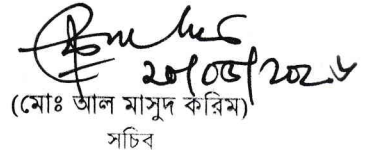 ২০/০৫/২০২৬
(মোঃ আল মাসুদ করিম)
সচিব